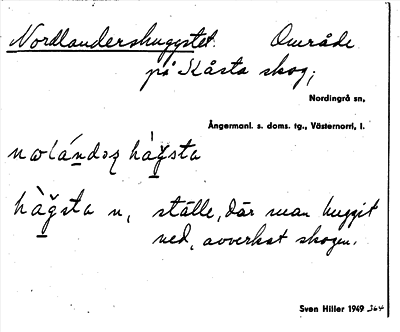 Nordlandershuggstet. Område
på Kåsta skog;
Nordingrå sn,
Ångermanl. s. doms. tg., Västernorrl, l.
hàg̀sta n, ställe, där man huggit
ned, avverkat skogen.
Sven Hiller 1949 364